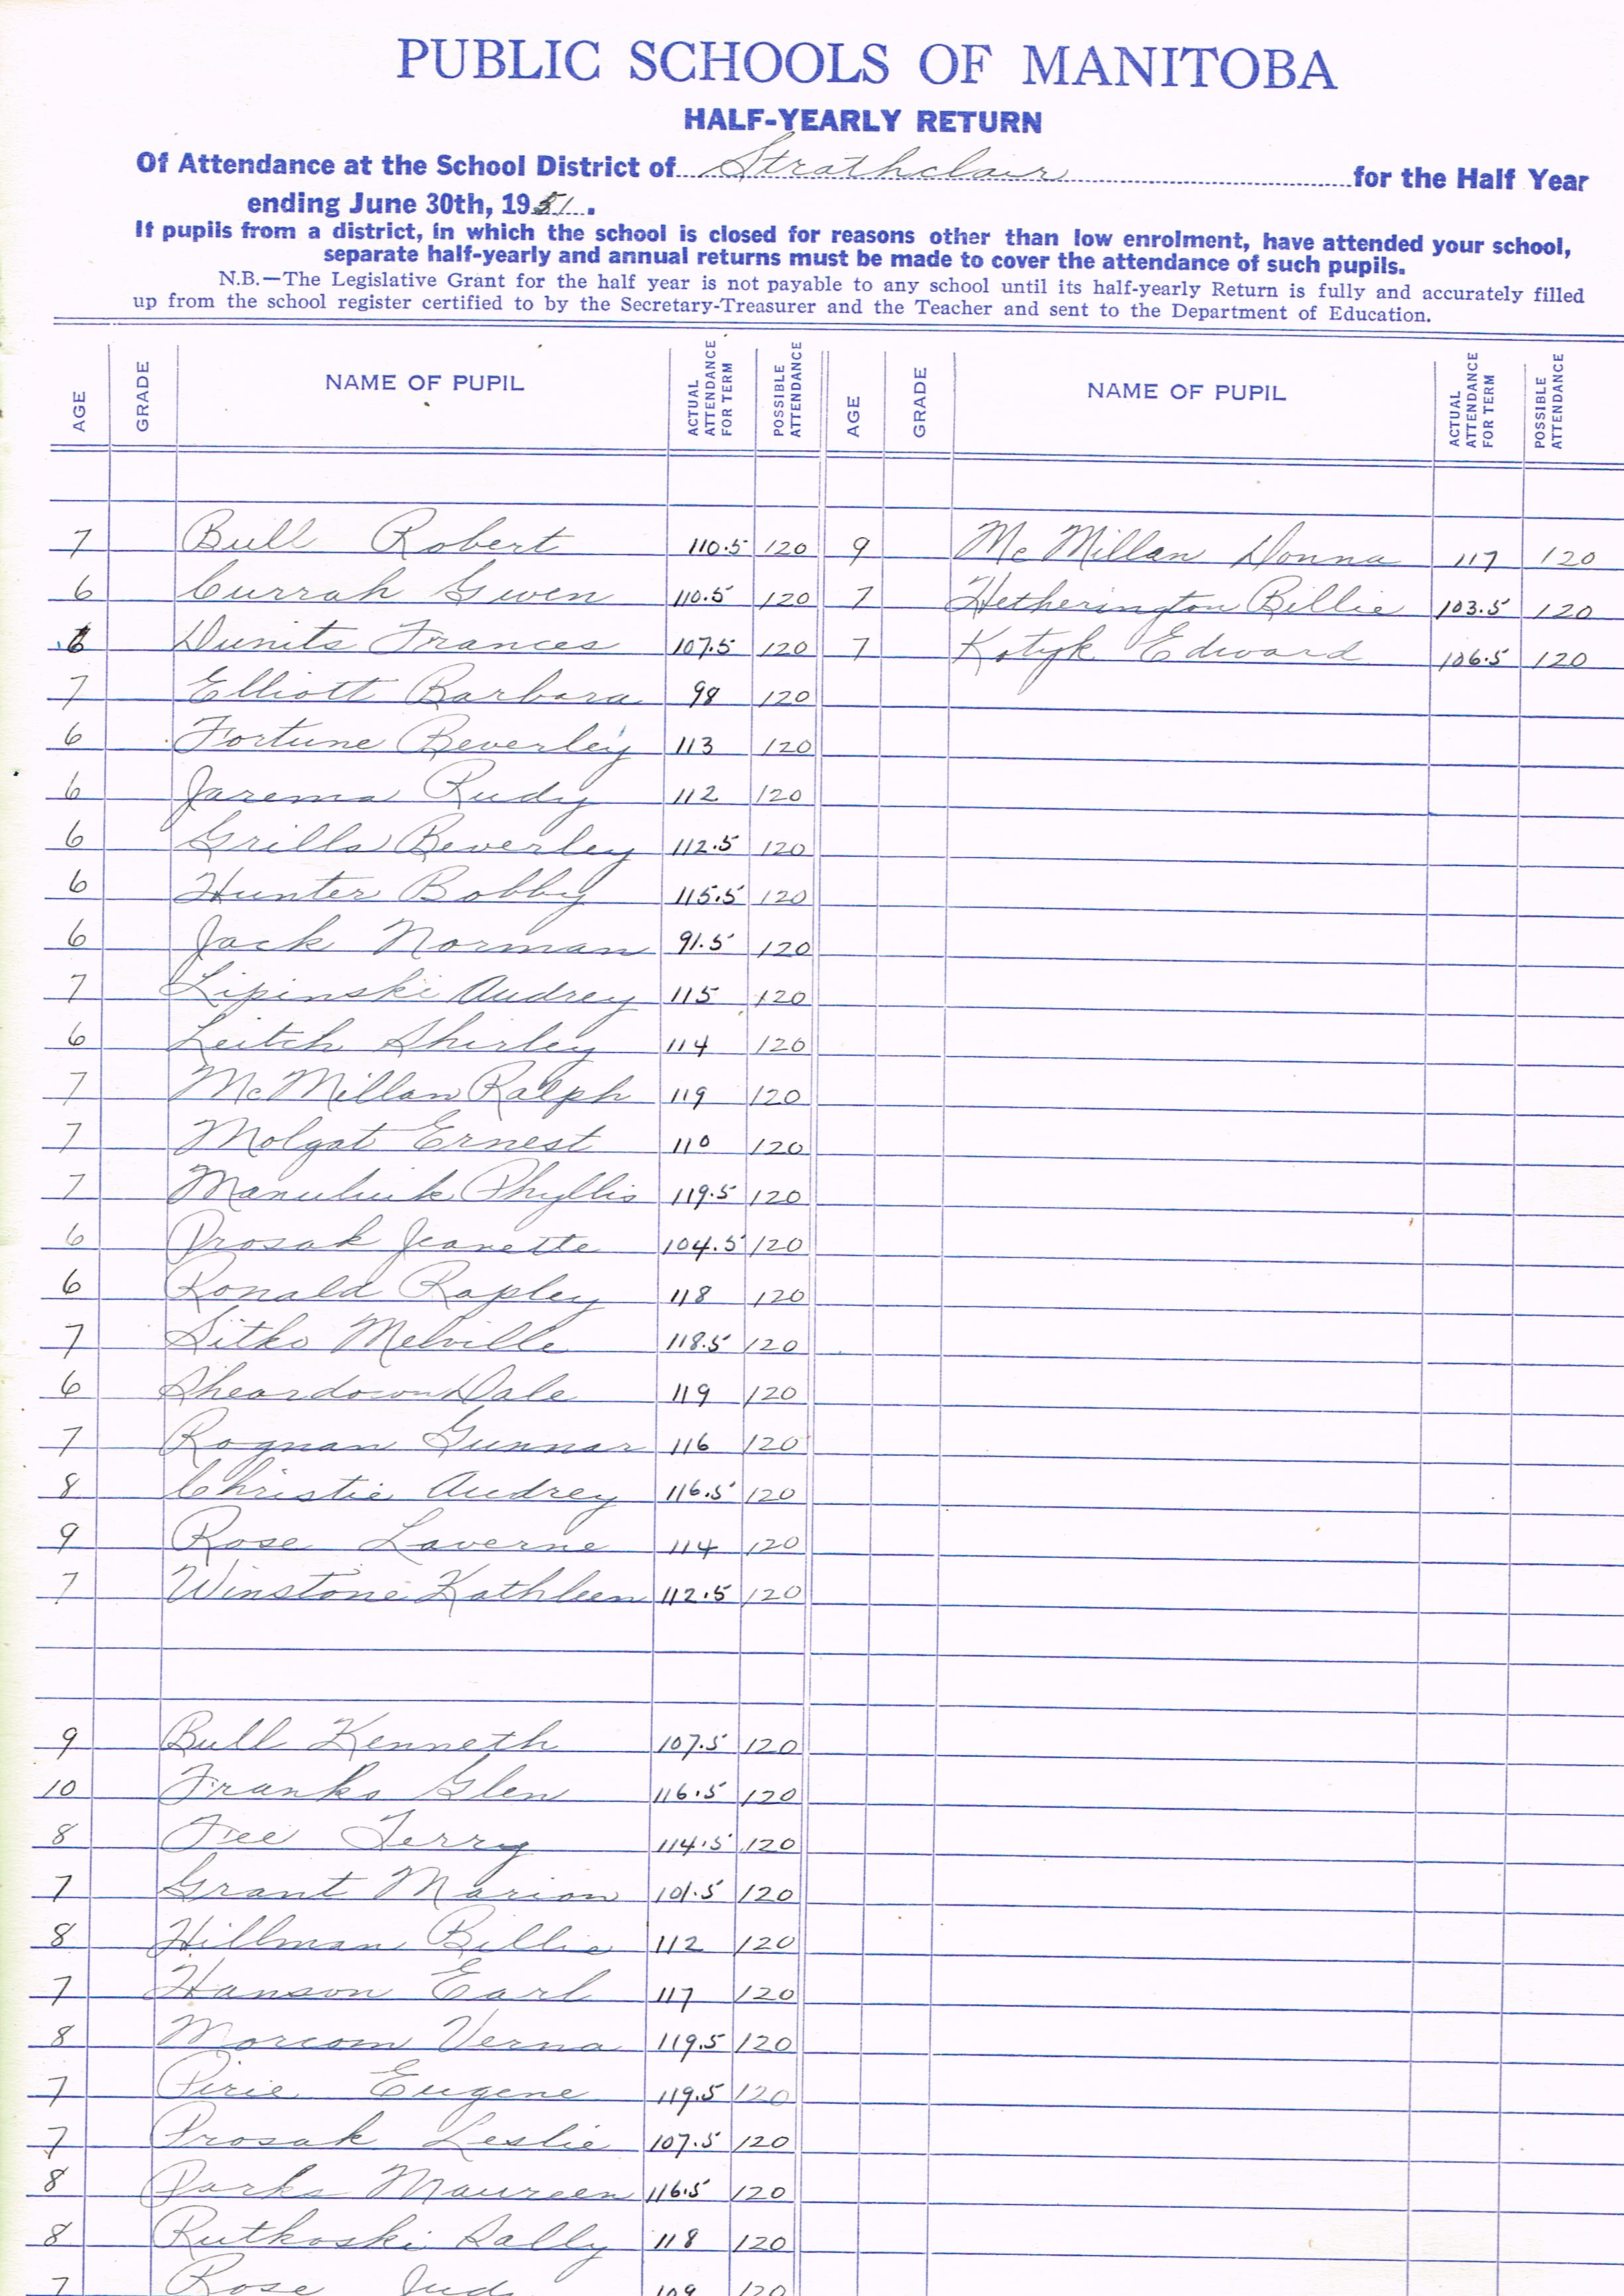 PUBLIC SCHOOLS OF MANITOBA
HALF-YEARLY RETURN
Of Attendance at the School District of Strathclair for the Half Year
ending June 30th, 1951.
If pupils from a district, in which the school is closed for reasons other than low enrolment, have attended your school,
separate half-yearly and annual returns must be made to cover the attendance of such pupils.
N.B.—The Legislative Grant for the half year is not payable to any school until its half-yearly Return is fully and accurately filled
up from the school register certified to by the Secretary-Treasurer and the Teacher and sent to the Department of Education.
AGE GRADE NAME OF PUPIL ACTUAL ATTENDANCE FOR TERM POSSIBLE ATTENDANCE AGE GRADE NAME OF PUPIL ACTUAL ATTENDANCE FOR TERM POSSIBLE ATTENDANCE
7 Bull Robert 110.5 120 9 McMillan Donna 117 120
6 Currah Gwen 110.5 120 7 Hetherington Billie 103.5 120
6 Dunits Frances 107.5 120 7 Kotyk Edward 106.5 120
7 Elliott Barbara 98 120
6 Fortune Beverley 113 120
6 Jarema Rudy 112 120
6 Grills Beverley 112.5 120
6 Hunter Bobby 115.5 120
6 Jack Norman 91.5 120
7 Lipinski Audrey 115 120
6 Leitch Shirley 114 120
7 McMillan Ralph 119 120
7 Molgat Ernest 110 120
7 Manuliuk Phyllis 119.5 120
6 Prosak Jeanette 104.5 120
6 Ronald Rapley 118 120
7 Sitko Melville 118.5 120
6 Sheardown Dale 119 120
7 Rognan Gunnar 116 120
8 Christie Audrey 116.5 120
9 Rose Laverne 114 120
7 Winstone Kathleen 112.5 120
9 Bull Kenneth 107.5 120
10 Franks Glen 116.5 120
8 Fee Terry 114.5 120
7 Grant Marion 101.5 120
8 Hillman Billie 112 120
7 Hanson Earl 117 120
8 Morcom Verna 119.5 120
7 Pirie Eugene 119.5 120
7 Prosak Leslie 107.5 120
8 Parks Maureen 116.5 120
8 Rutkoski Sally 118 120
7 Rose 109 120